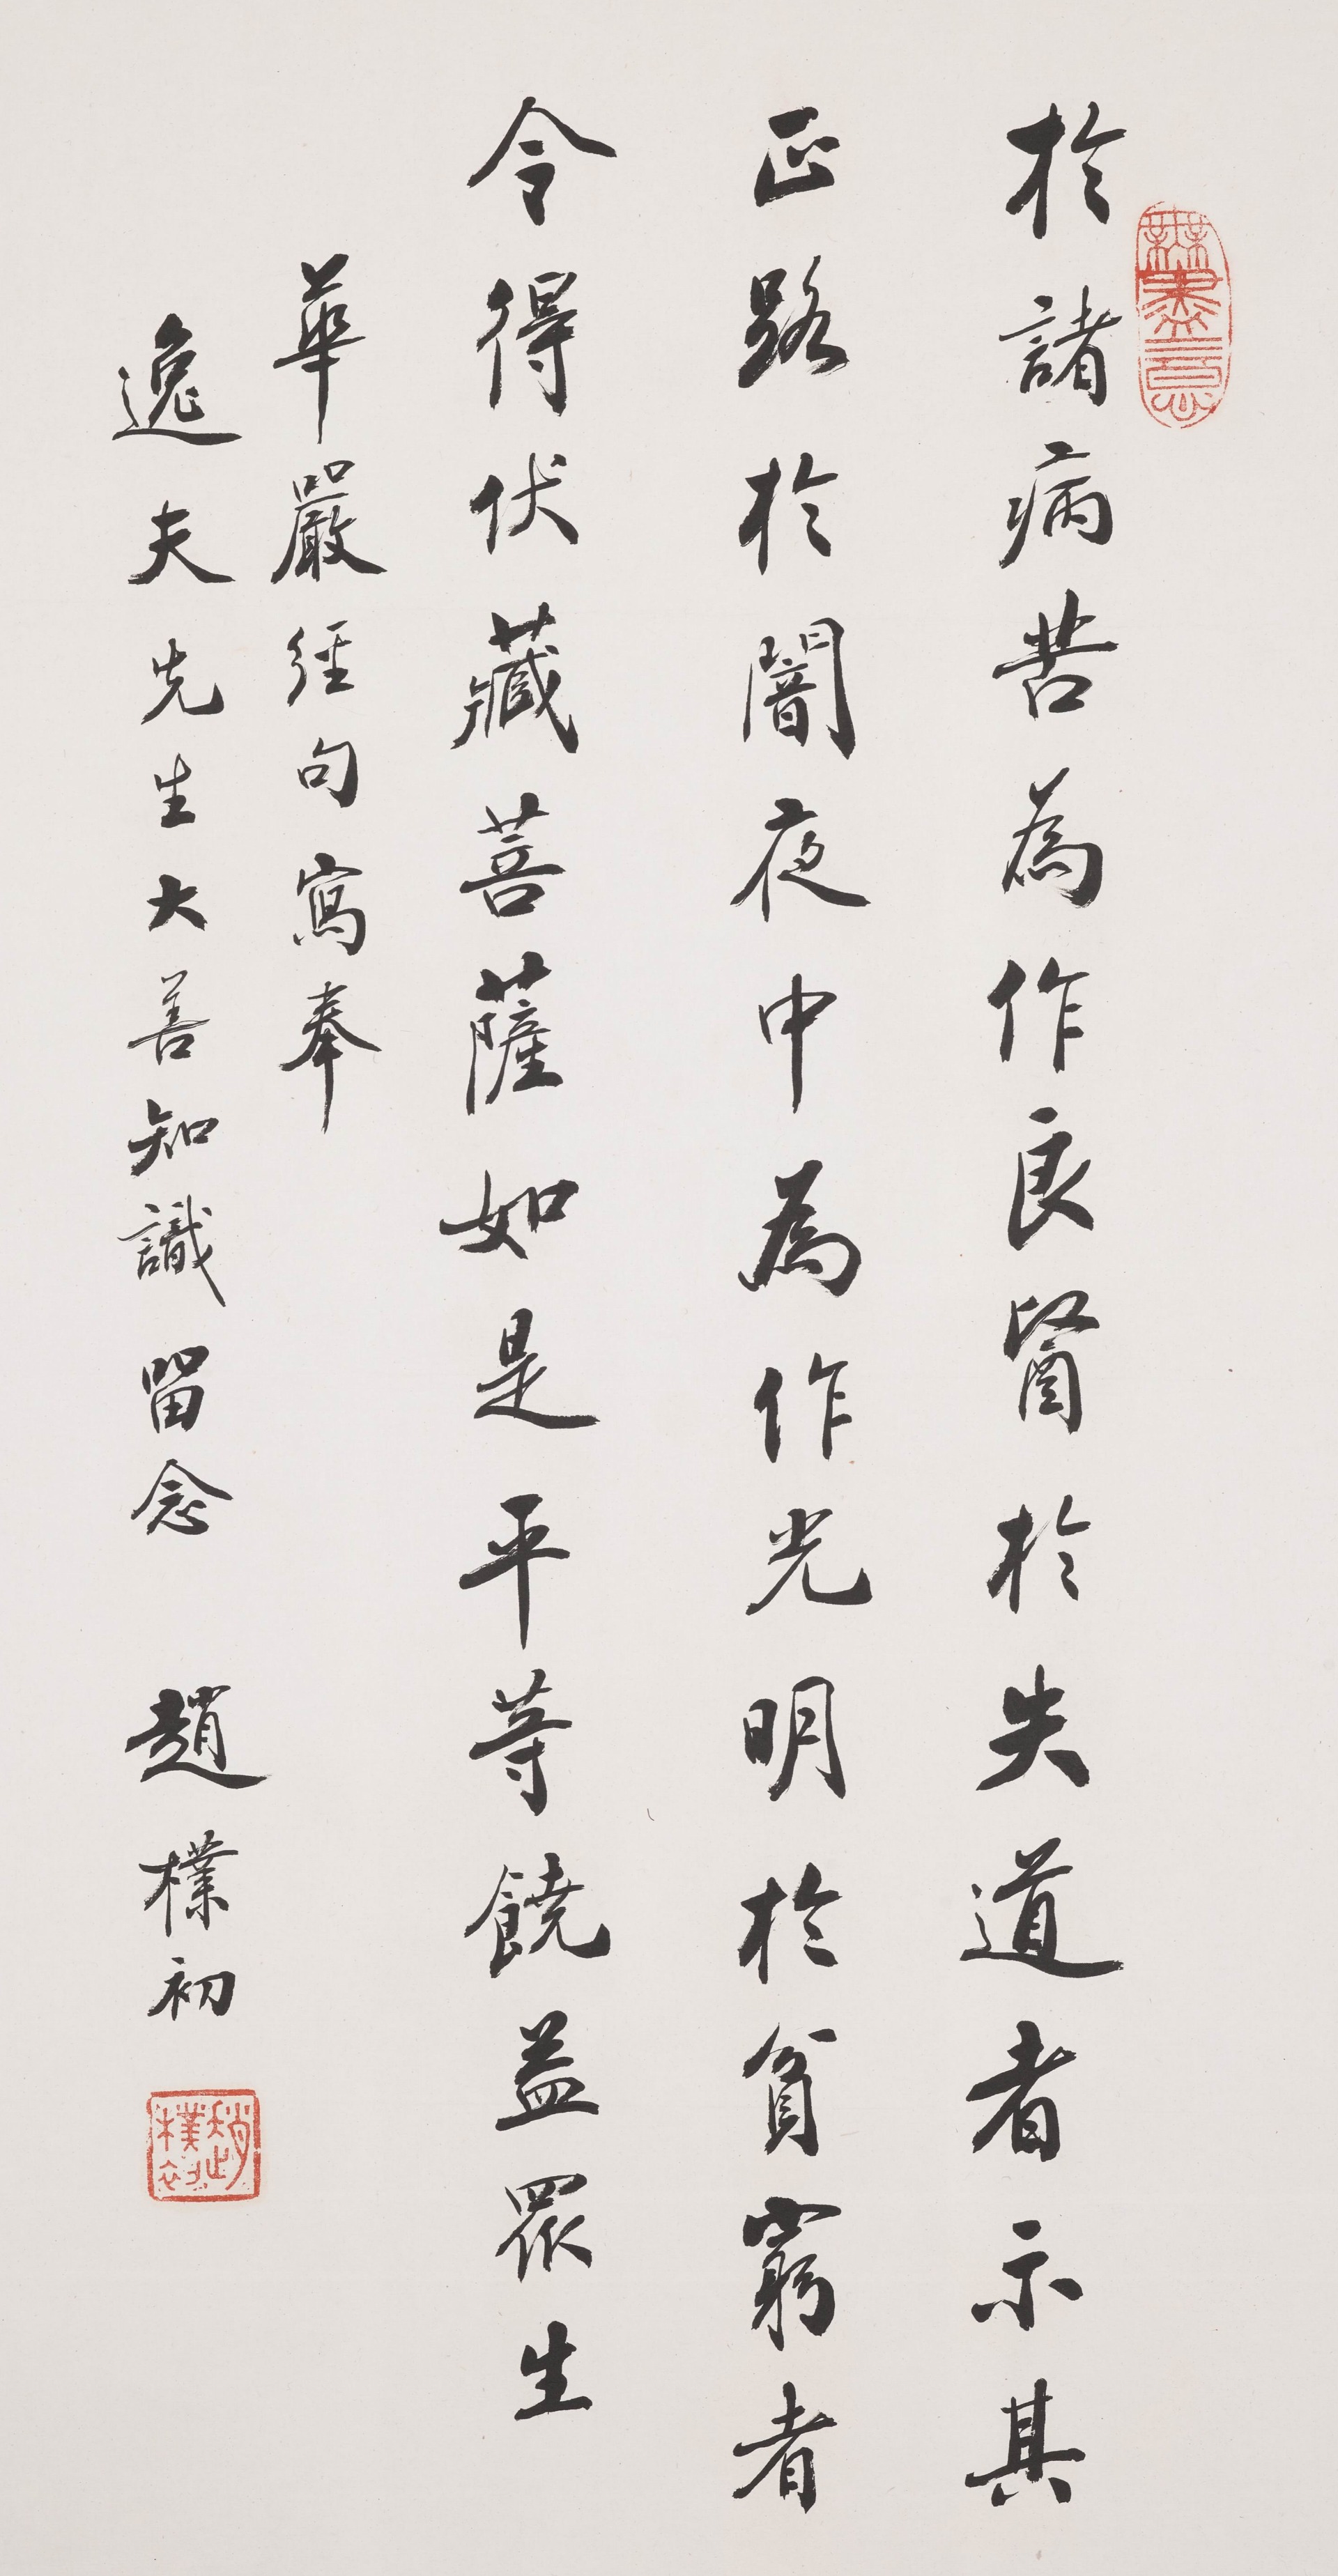 於諸病苦為作良醫於失道者示其
正路於闇夜中為作光明於貧窮者
令得伏藏菩薩如是平等饒益眾生
華嚴經句寫奉
逸夫先生大善知識留念 趙樸初
無盡意
趙樸初